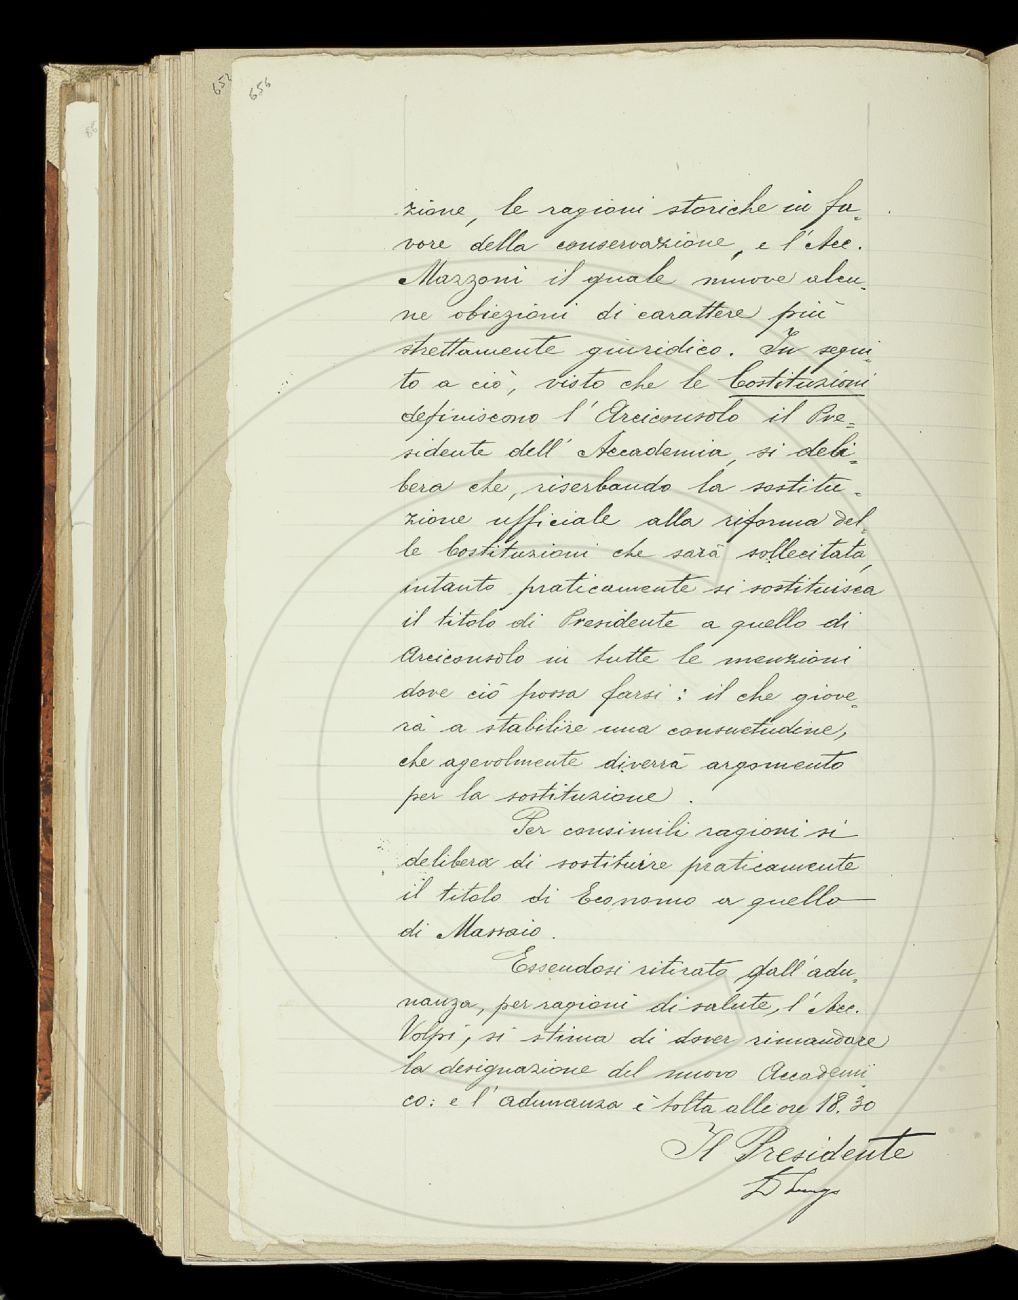 656
zione, le ragioni storiche in fa-
vore della conservazione, e l'Acc.
Mazzoni il quale muove alcu-
ne obiezioni di carattere più
strettamente giuridico. In segui-
to a ciò, visto che le Costituzioni
definiscono l'Arciconsolo il Pre=
sidente dell'Accademia, si deli=
bera che, riserbando la sostitu-
zione ufficiale alla riforma del-
le Costituzioni che sarà sollecitata,
intanto praticamente si sostituisca
il titolo di Presidente a quello di
Arciconsolo in tutte le menzioni
dove ciò possa farsi: il che giove=
rà a stabilire una consuetudine,
che agevolmente diverrà argomento
per la sostituzione.
Per consimili ragioni si
delibera di sostituire praticamente
il titolo di Economo a quello
di Massaio.
Essendosi ritirato dall'adu-
nanza, per ragioni di salute, l'Acc.
Volpi, si stima di dover rimandare
la designazione del nuovo Accademi
co: e l'adunanza è tolta alle ore 18.30
Il Presidente